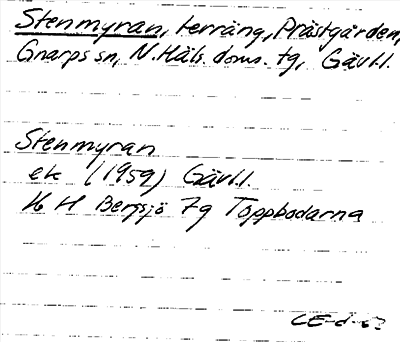 Stenmyran, terräng, Prästgården,
Gnarps sn, N. Häls. doms. tg, Gävl.l.
Stenmyran
ek (1959) Gävl.l.
16 H Bergsjö 7g Toppbodarna